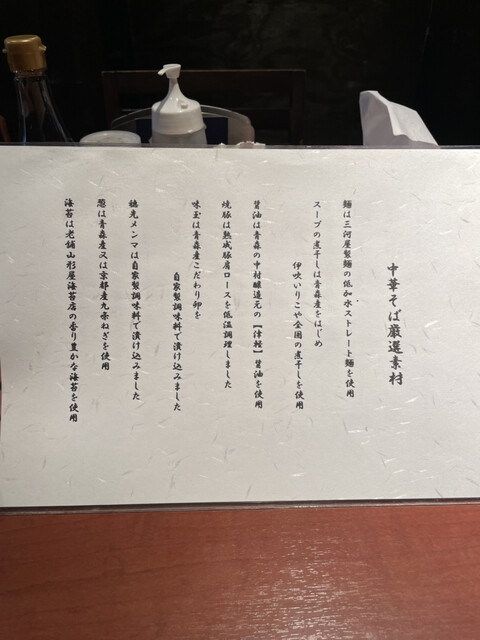 中華そば厳選素材
麺は三河屋製麺の低加水ストレート麺を使用
スープの煮干しは青森産をはじめ
伊吹いりこや全国の煮干しを使用
醤油は青森の中村醸造元の【津軽】醤油を使用
焼豚は熟成豚肩ロースを低温調理しました
味玉は青森産こだわり卵を
自家製調味料で漬け込みました
穂先メンマは自家製調味料で漬け込みました
葱は青森産又は京都産九条ねぎを使用
海苔は老舗山形屋海苔店の香り豊かな海苔を使用